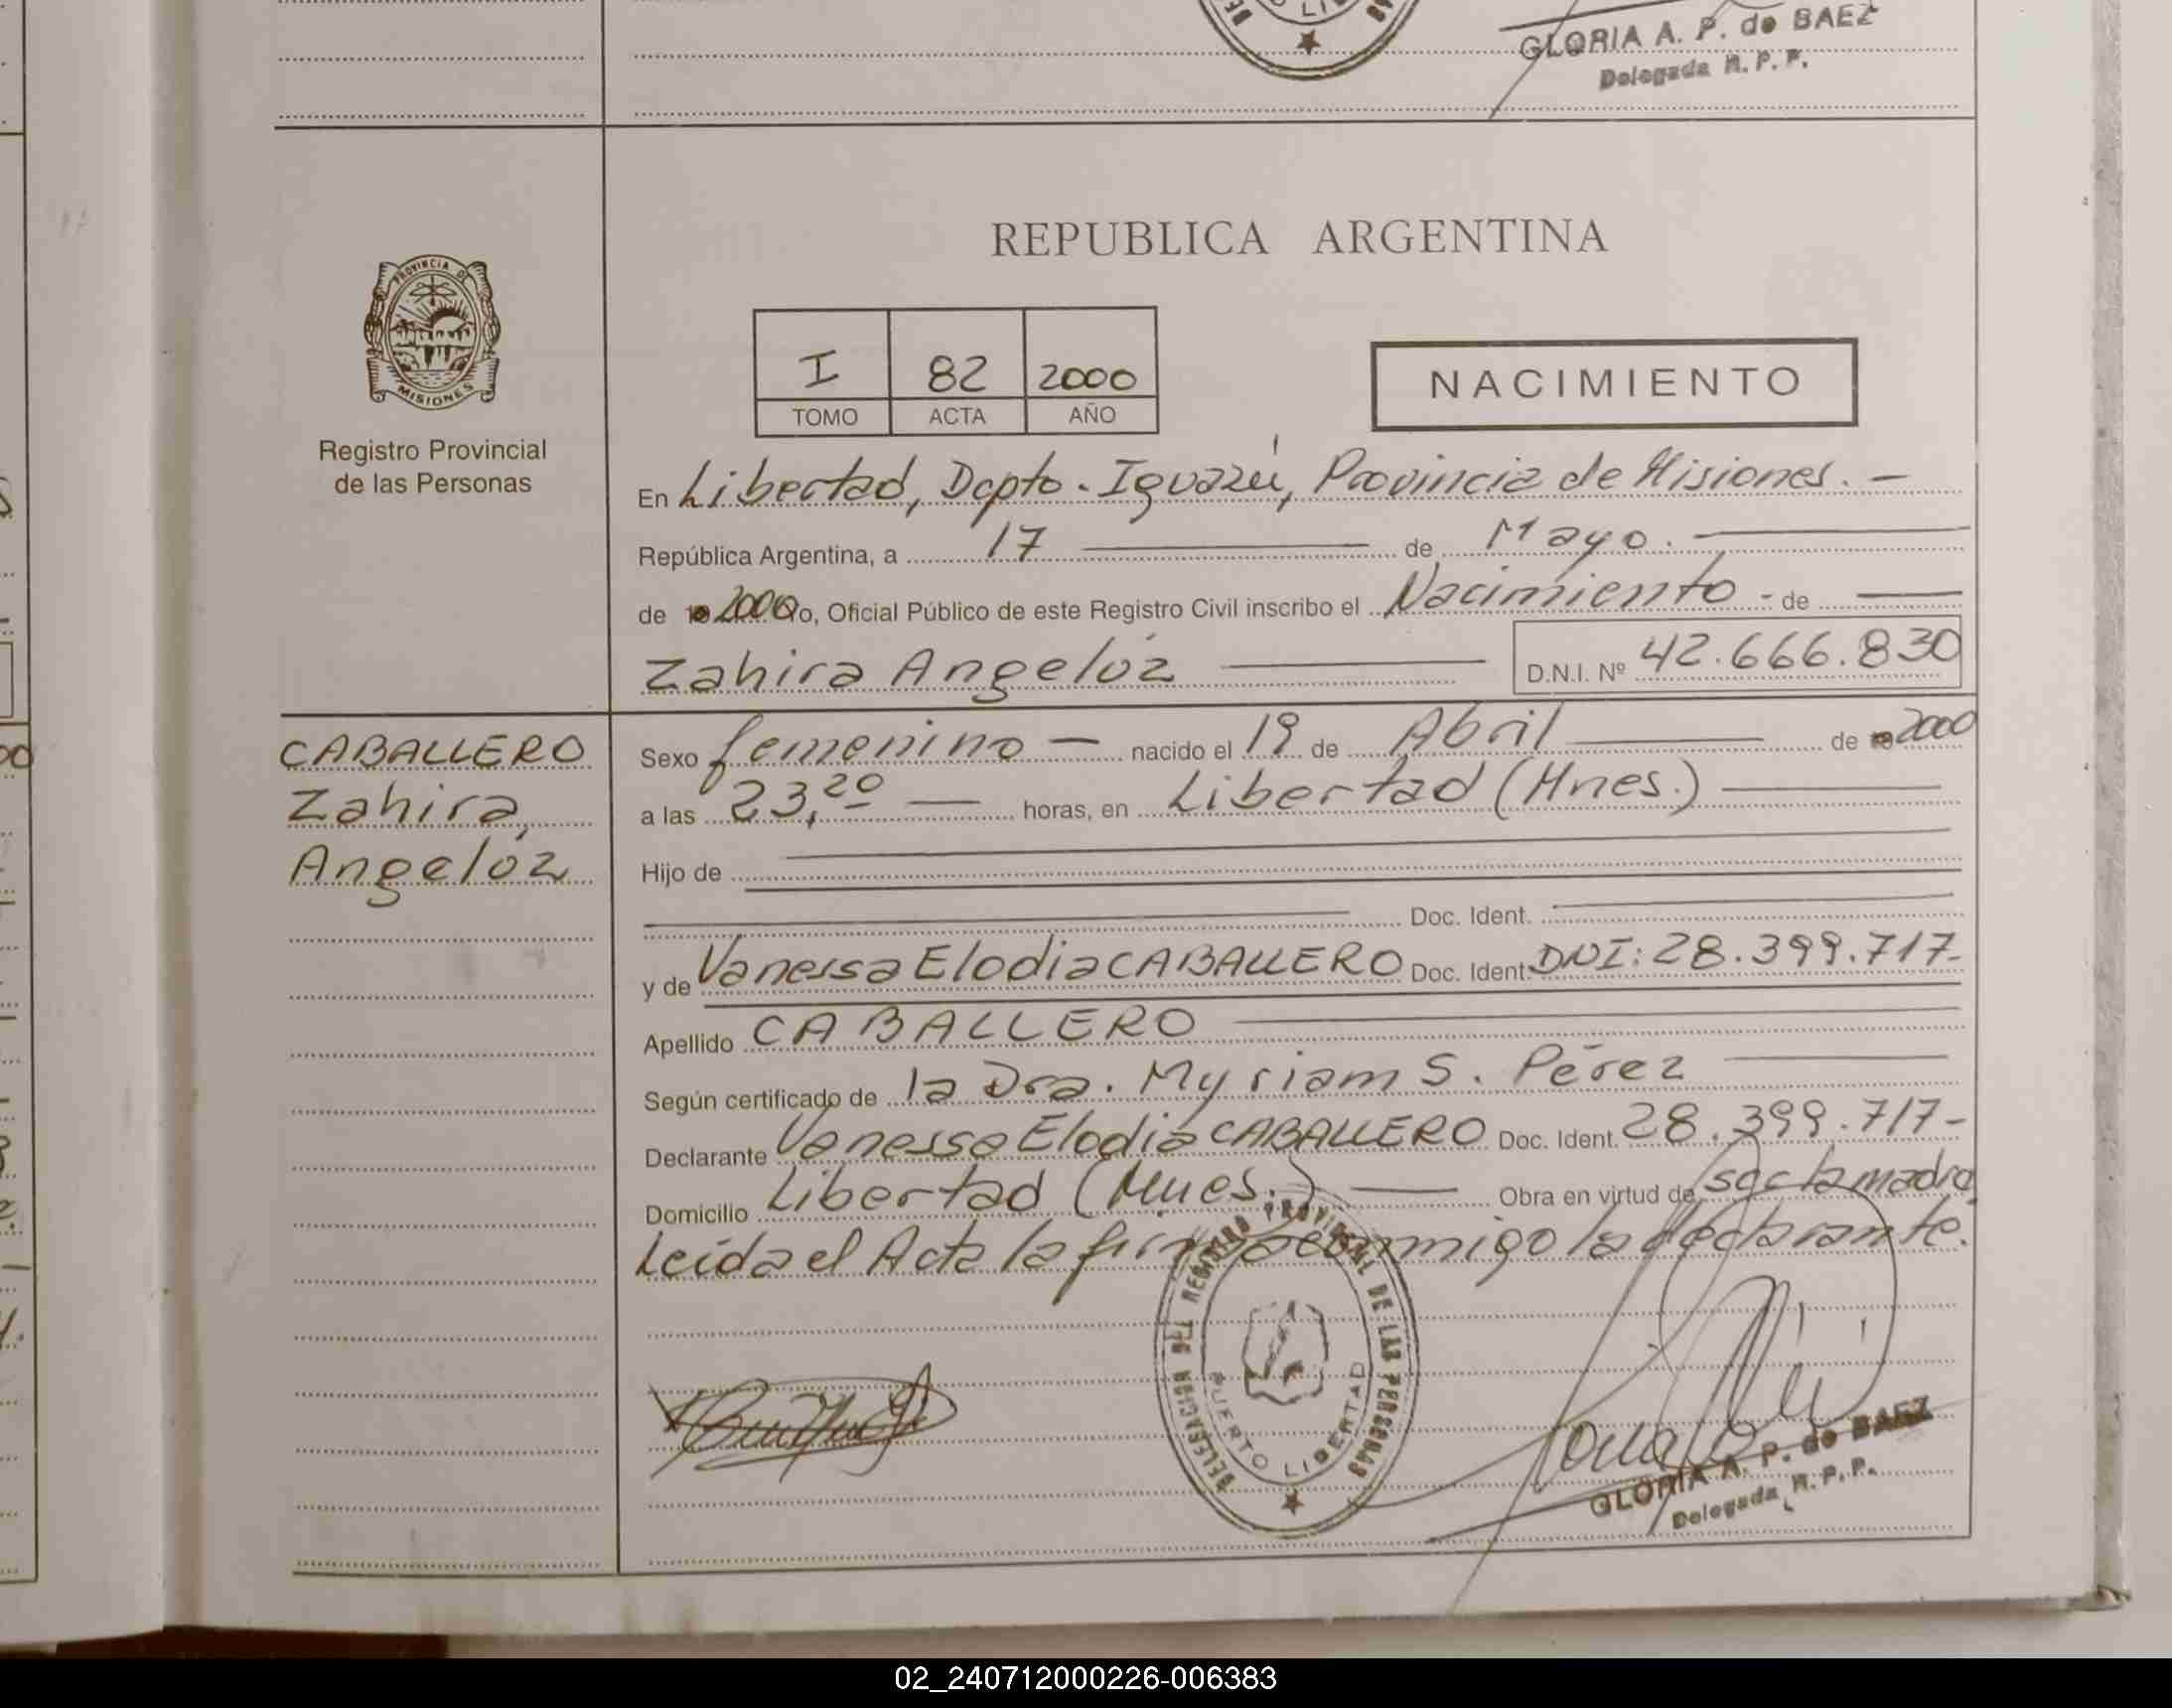 GLORIA A. P. de BAEZ
Delegada R. P. P.
PROVINCIA DE
MISIONES
Registro Provincial
de las Personas
REPUBLICA ARGENTINA
I 82 2000
TOMO ACTA AÑO
NACIMIENTO
En Libertad, Dcpto. Iguazú, Provincia de Misiones. —
República Argentina, a 17 — de Mayo. —
de 2000 Yo, Oficial Público de este Registro Civil inscribo el Nacimiento - de —
Zahira Angelóz — D.N.I. Nº 42.666.830
CABALLERO
Zahira,
Angelóz
Sexo femenino — nacido el 19 de Abril — de 2000
a las 23,20 — horas, en Libertad (Mnes.) —
Hijo de —
— Doc. Ident. —
y de Vanessa Elodia CABALLERO Doc. Ident. DNI: 28.399.717-
Apellido CABALLERO —
Según certificado de la Dra. Myriam S. Pérez —
Declarante Vanessa Elodia CABALLERO Doc. Ident. 28.399.717-
Domicilio Libertad (Mnes.) — Obra en virtud de ser la madre
Leída el Acta la firma conmigo la declarante.
DELEGACION DEL REGISTRO PROVINCIAL DE LAS PERSONAS
PUERTO LIBERTAD
GLORIA A. P. de BAEZ
Delegada R. P. P.
02_240712000226-006383